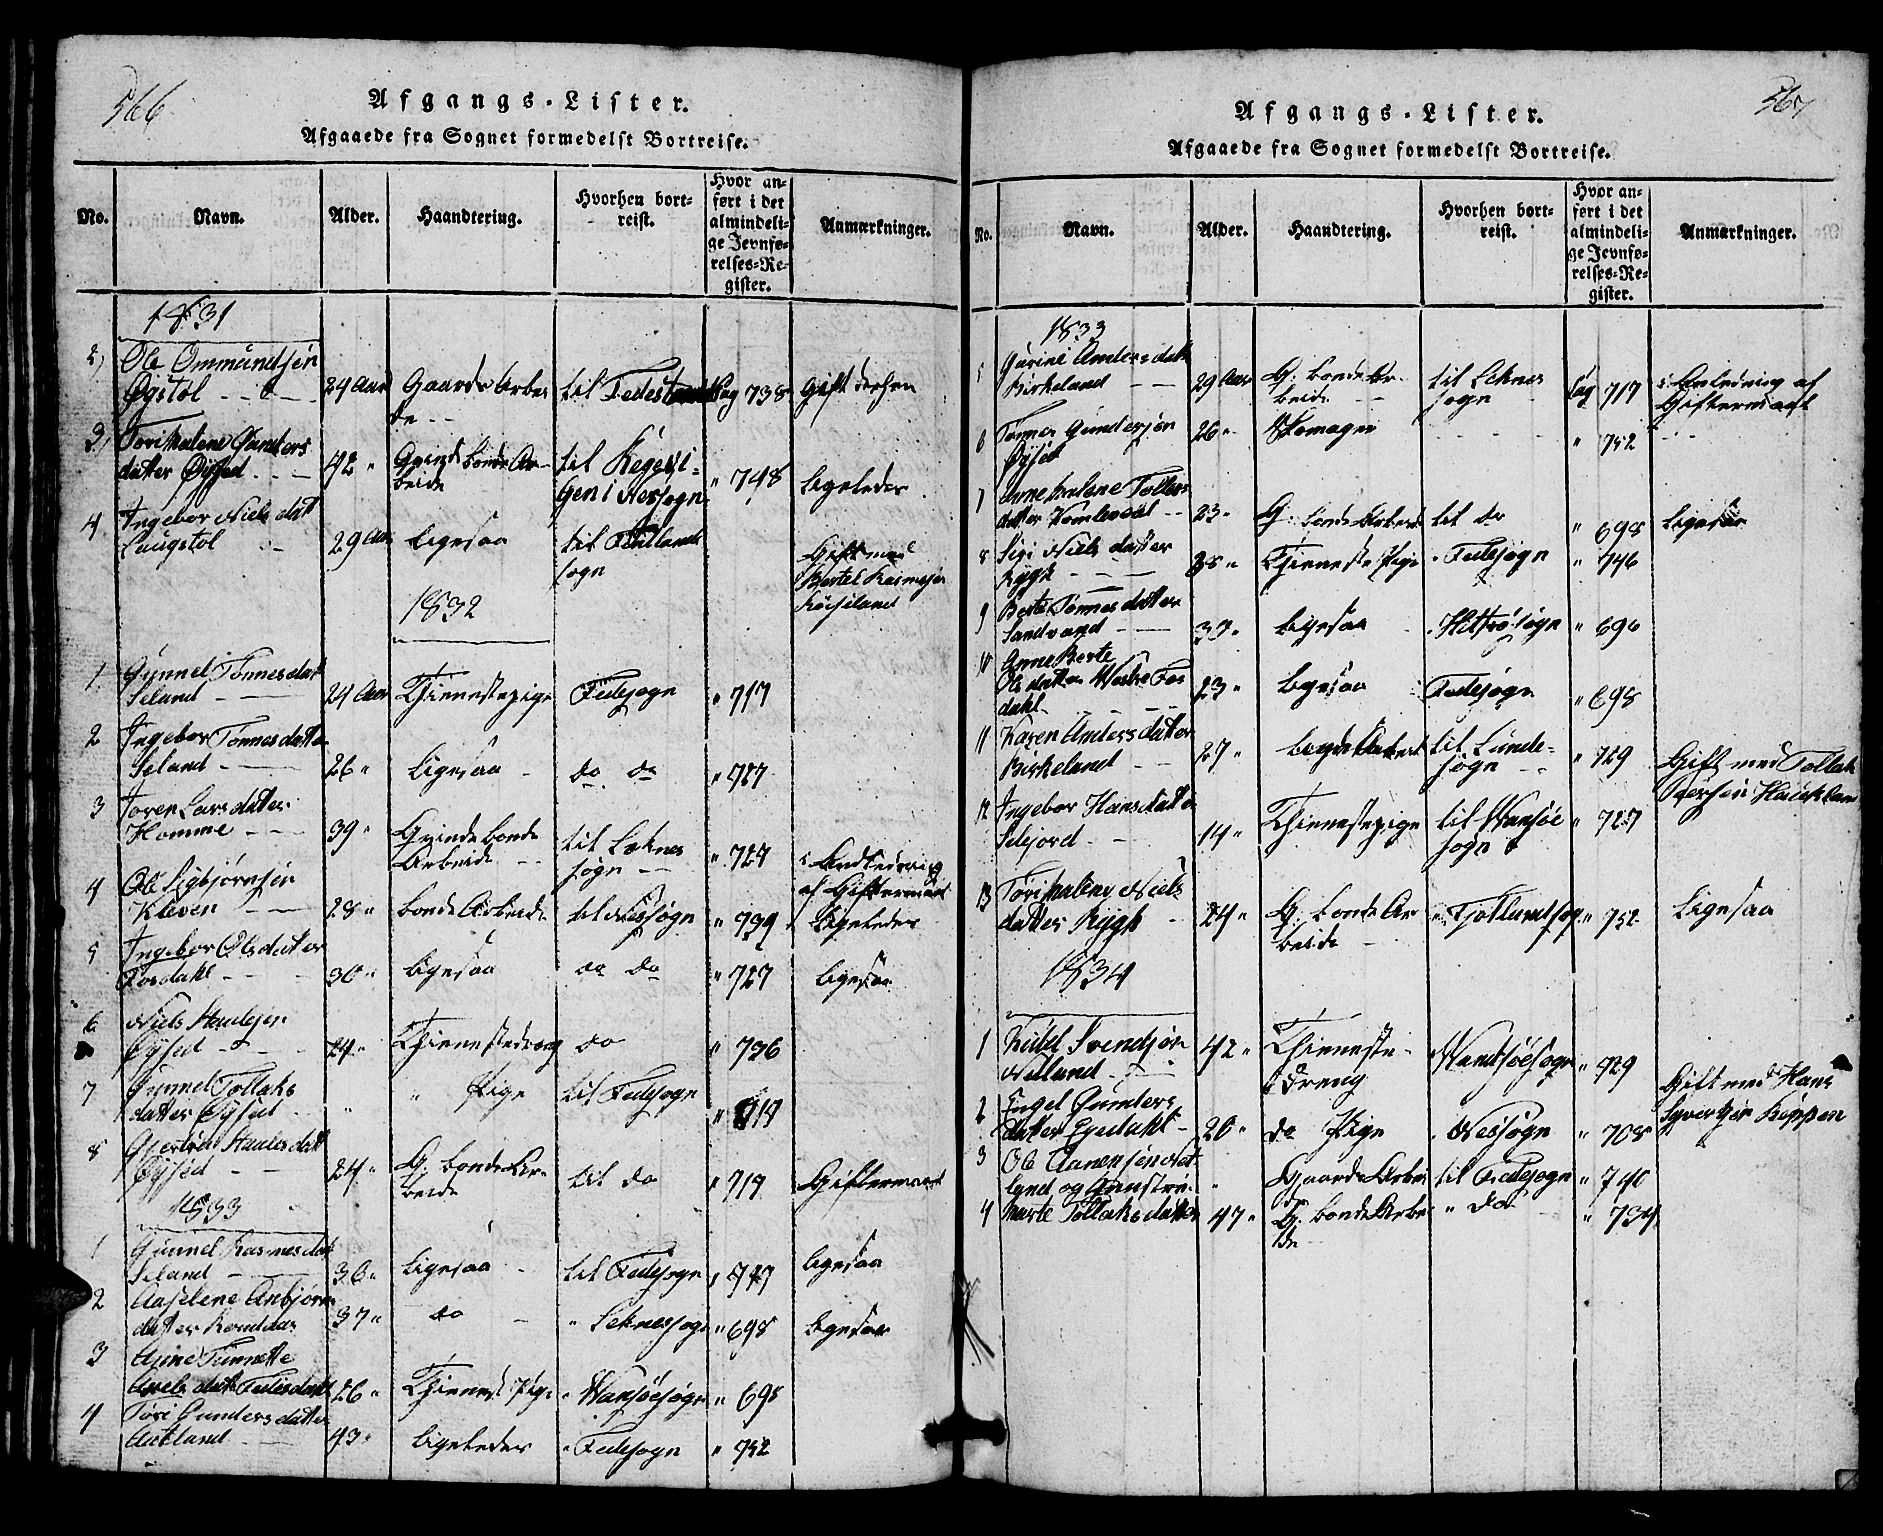 566
Afgangs-Lister.
Afgaaede fra Sognet formedelst Bortreise.
No.
Navn.
Alder.
Haandtering.
Hvorhen bort-
reist.
Hvor an-
ført i det
almindeli-
ge Jevnfø-
relses-Re-
gister.
Anmærkninger.
1831
2, Ole Ommundsøn
Øgstøl 24 Aar Gaards Arbei
de til Fedes Pag 738 Gift derhen
3, Tori Malene Gunders
datter Øysed 42 " Qvinde bonde Ar-
beide til
Gen i Nessogn " 748 ligeledes
4 Ingebor Niels dat
Laugstøl 29 Aar ligesaa til
sogn Gift med
Bertel Rasmusen
1832
1 Gunnel Tønnesdat
Seland 24 Aar Tienestepige Fedesogn " 717
2 Ingebor Tønnesdatter
Seland 26 " ligesaa do do " 727
3 Toren Larsdatter
Homme 39 " Qvinde bonde
Arbeide til Leknes
sogn " 727 i Andledning
af Giftermaal
4 Ole Sigbjørnsen
Kleven 28 " bonde Arbeide til Nessogn " 739 ligeledes
5 Ingebor Olsdatter
Fosdahl 30 " ligesaa do do " 727 ligesaa
6 Niels Staalesen
Øysed 24 " Tienestedreng do " 736
7 Gunnel Tollaks
datter Øysed " " Pige til Fedesogn " 717
8 Giertrud Staalesdatt
Øysed 24 " Q. bonde Ar-
beide til do " 717 Giftermaal
1833
1 Gunnel Rasmusdat
Seland 36 " ligesaa til Fedesogn " 727 ligesaa
2 Aaselene Anbjørns
datter 37 " do " Leknessogn " 698 ligesaa
3 Anne Tonnette
dat Fedesdahl 26 " Tienest Pige " Vansøesogn " 698
4 Tori Gundersdatter
Aukland 43 " ligeledes " Fedesogn " 752
567
Afgangs-Lister.
Afgaaede fra Sognet formedelst Bortreise.
No.
Navn.
Alder.
Haandtering.
Hvorhen bort-
reist.
Hvor an-
ført i det
almindeli-
ge Jevnfø-
relses-Re-
gister.
Anmærkninger.
1833
5 Gurine Andersdatt
Birkeland 29 Aar Q. bonde Ar-
beide til Leknes
sogn Pag 717 i Anledning af
Giftermaal
6 Tønnes Gundersøn
Øysed 26 " Skomager " 752
7 Anne Malene Tollevs
datter 23 " Q. bonde Arbeid til do " 698 ligesaa
8 Siri Niels datter
Rygh 38 " Tieneste Pige " Fedesogn " 746
9 Berte Tønnes datter
Sandvand 37 " ligesaa " Hitterøsogn " 696
10 Anne Berte
Olsdatter Vestre Fos
dahl 23 " ligesaa Fedesogn " 698
11 Karen Andersdatter
Birkeland 27 " til Lunde-
sogn " 729 Gift med Tollak
12 Ingebor Hansdatter
Selejord 14 " Tienestepige til Vansøe
sogn " 727
13 Tori Malene Niels
datter Rygh 24 " Q. bonde Ar
beide " 752 ligesaa
1834
1 Kittel Svendsøn
Netland 42 " Tieneste-
Dreng Vandsøesogn " 729
2 Engel Gunders
datter Egedahl 20 " do Pige " Nessogn " 708 Gift med Hans
Syvertsen
3 Ole Aanensen Net
land og Gaards Arbei til Fedesogn " 740
4 Marte Tollaksdatter 47 " Q. bonde Arbei
de " do " 734